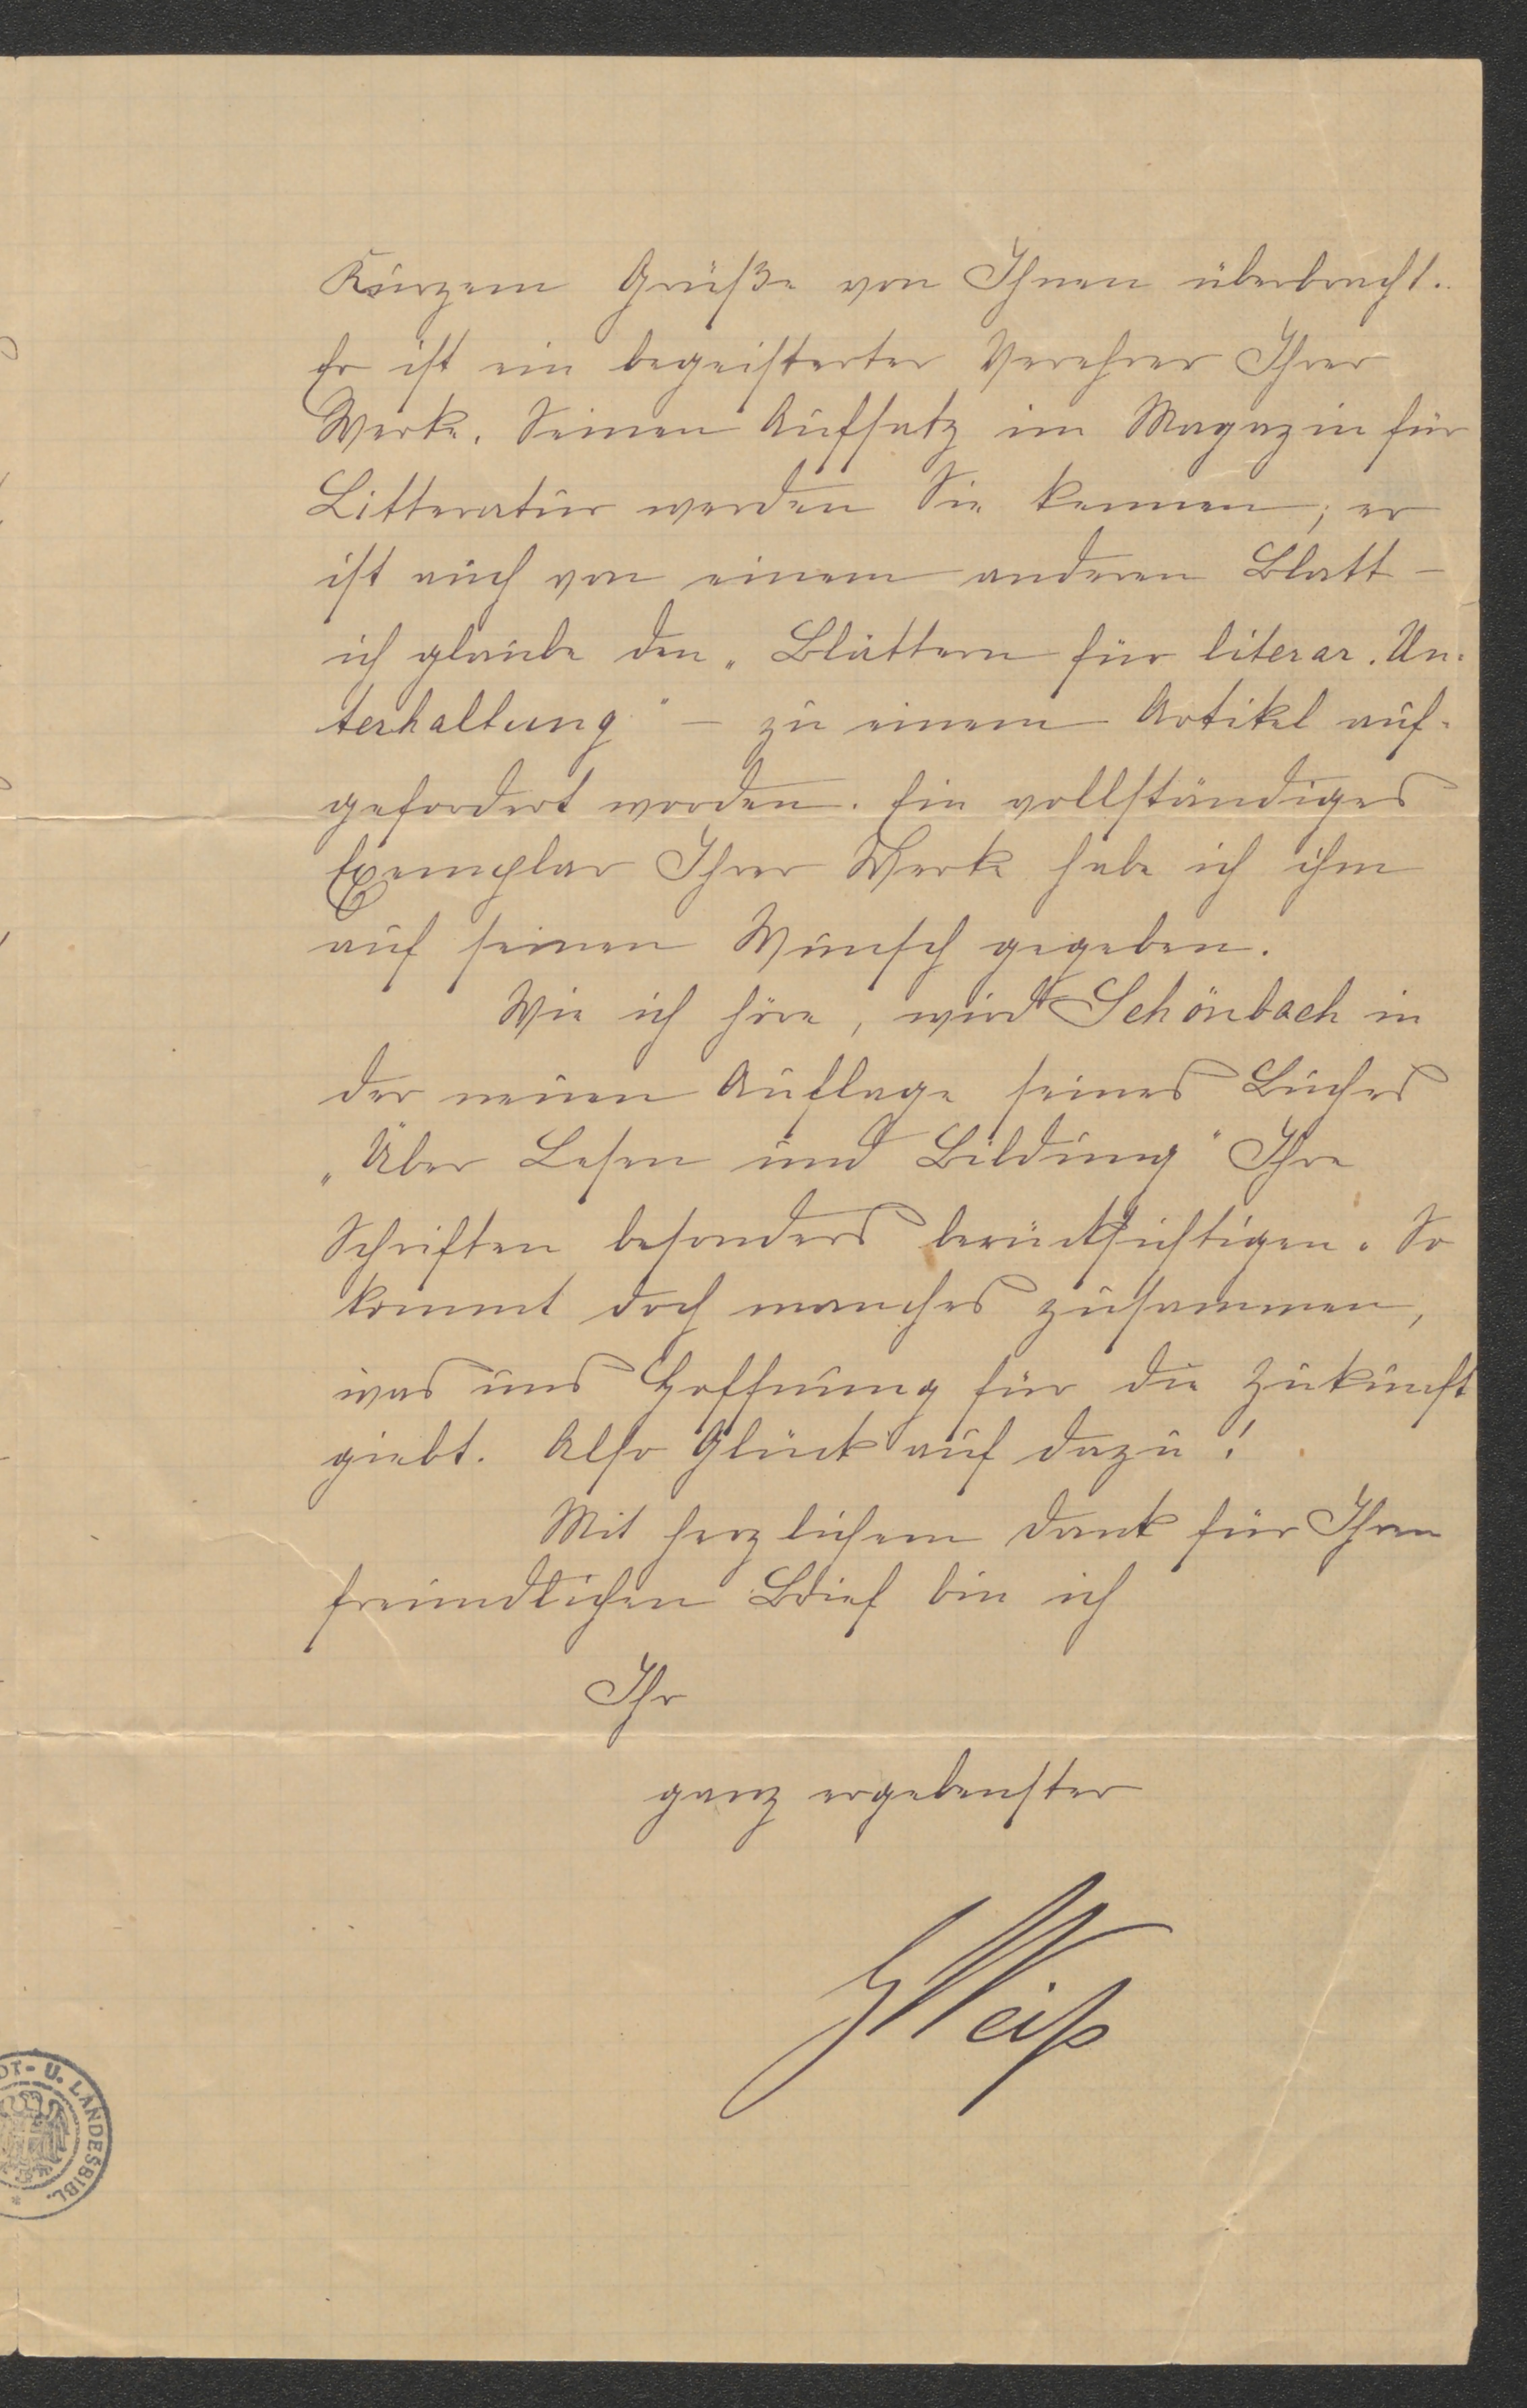 Kurzem Grüße von Ihnen überbracht.
Er ist ein begeisterter Verehrer Ihrer
Werke. Seinen Aufsatz im Magazin für
Litteratur werden Sie kennen; er
ist auch von einem anderen Blatt –
ich glaube den „Blättern für literar. Un-
terhaltung" – zu einem Artikel auf-
gefordert worden. Ein vollständiges
Exemplar Ihrer Werke habe ich ihm
auf seinen Wunsch gegeben.
Wie ich höre, wird Schönbach in
der neuen Auflage seines Buches
„Über Lesen und Bildung" Ihre
Schriften besonders berücksichtigen. So
kommt doch manches zusammen,
was uns Hoffnung für die Zukunft
giebt. Also Glück auf dazu!
Mit herzlichem Dank für Ihren
freundlichen Brief bin ich
Ihr
ganz ergebenster
GWeiß
DT- U. LANDESBIBL. *